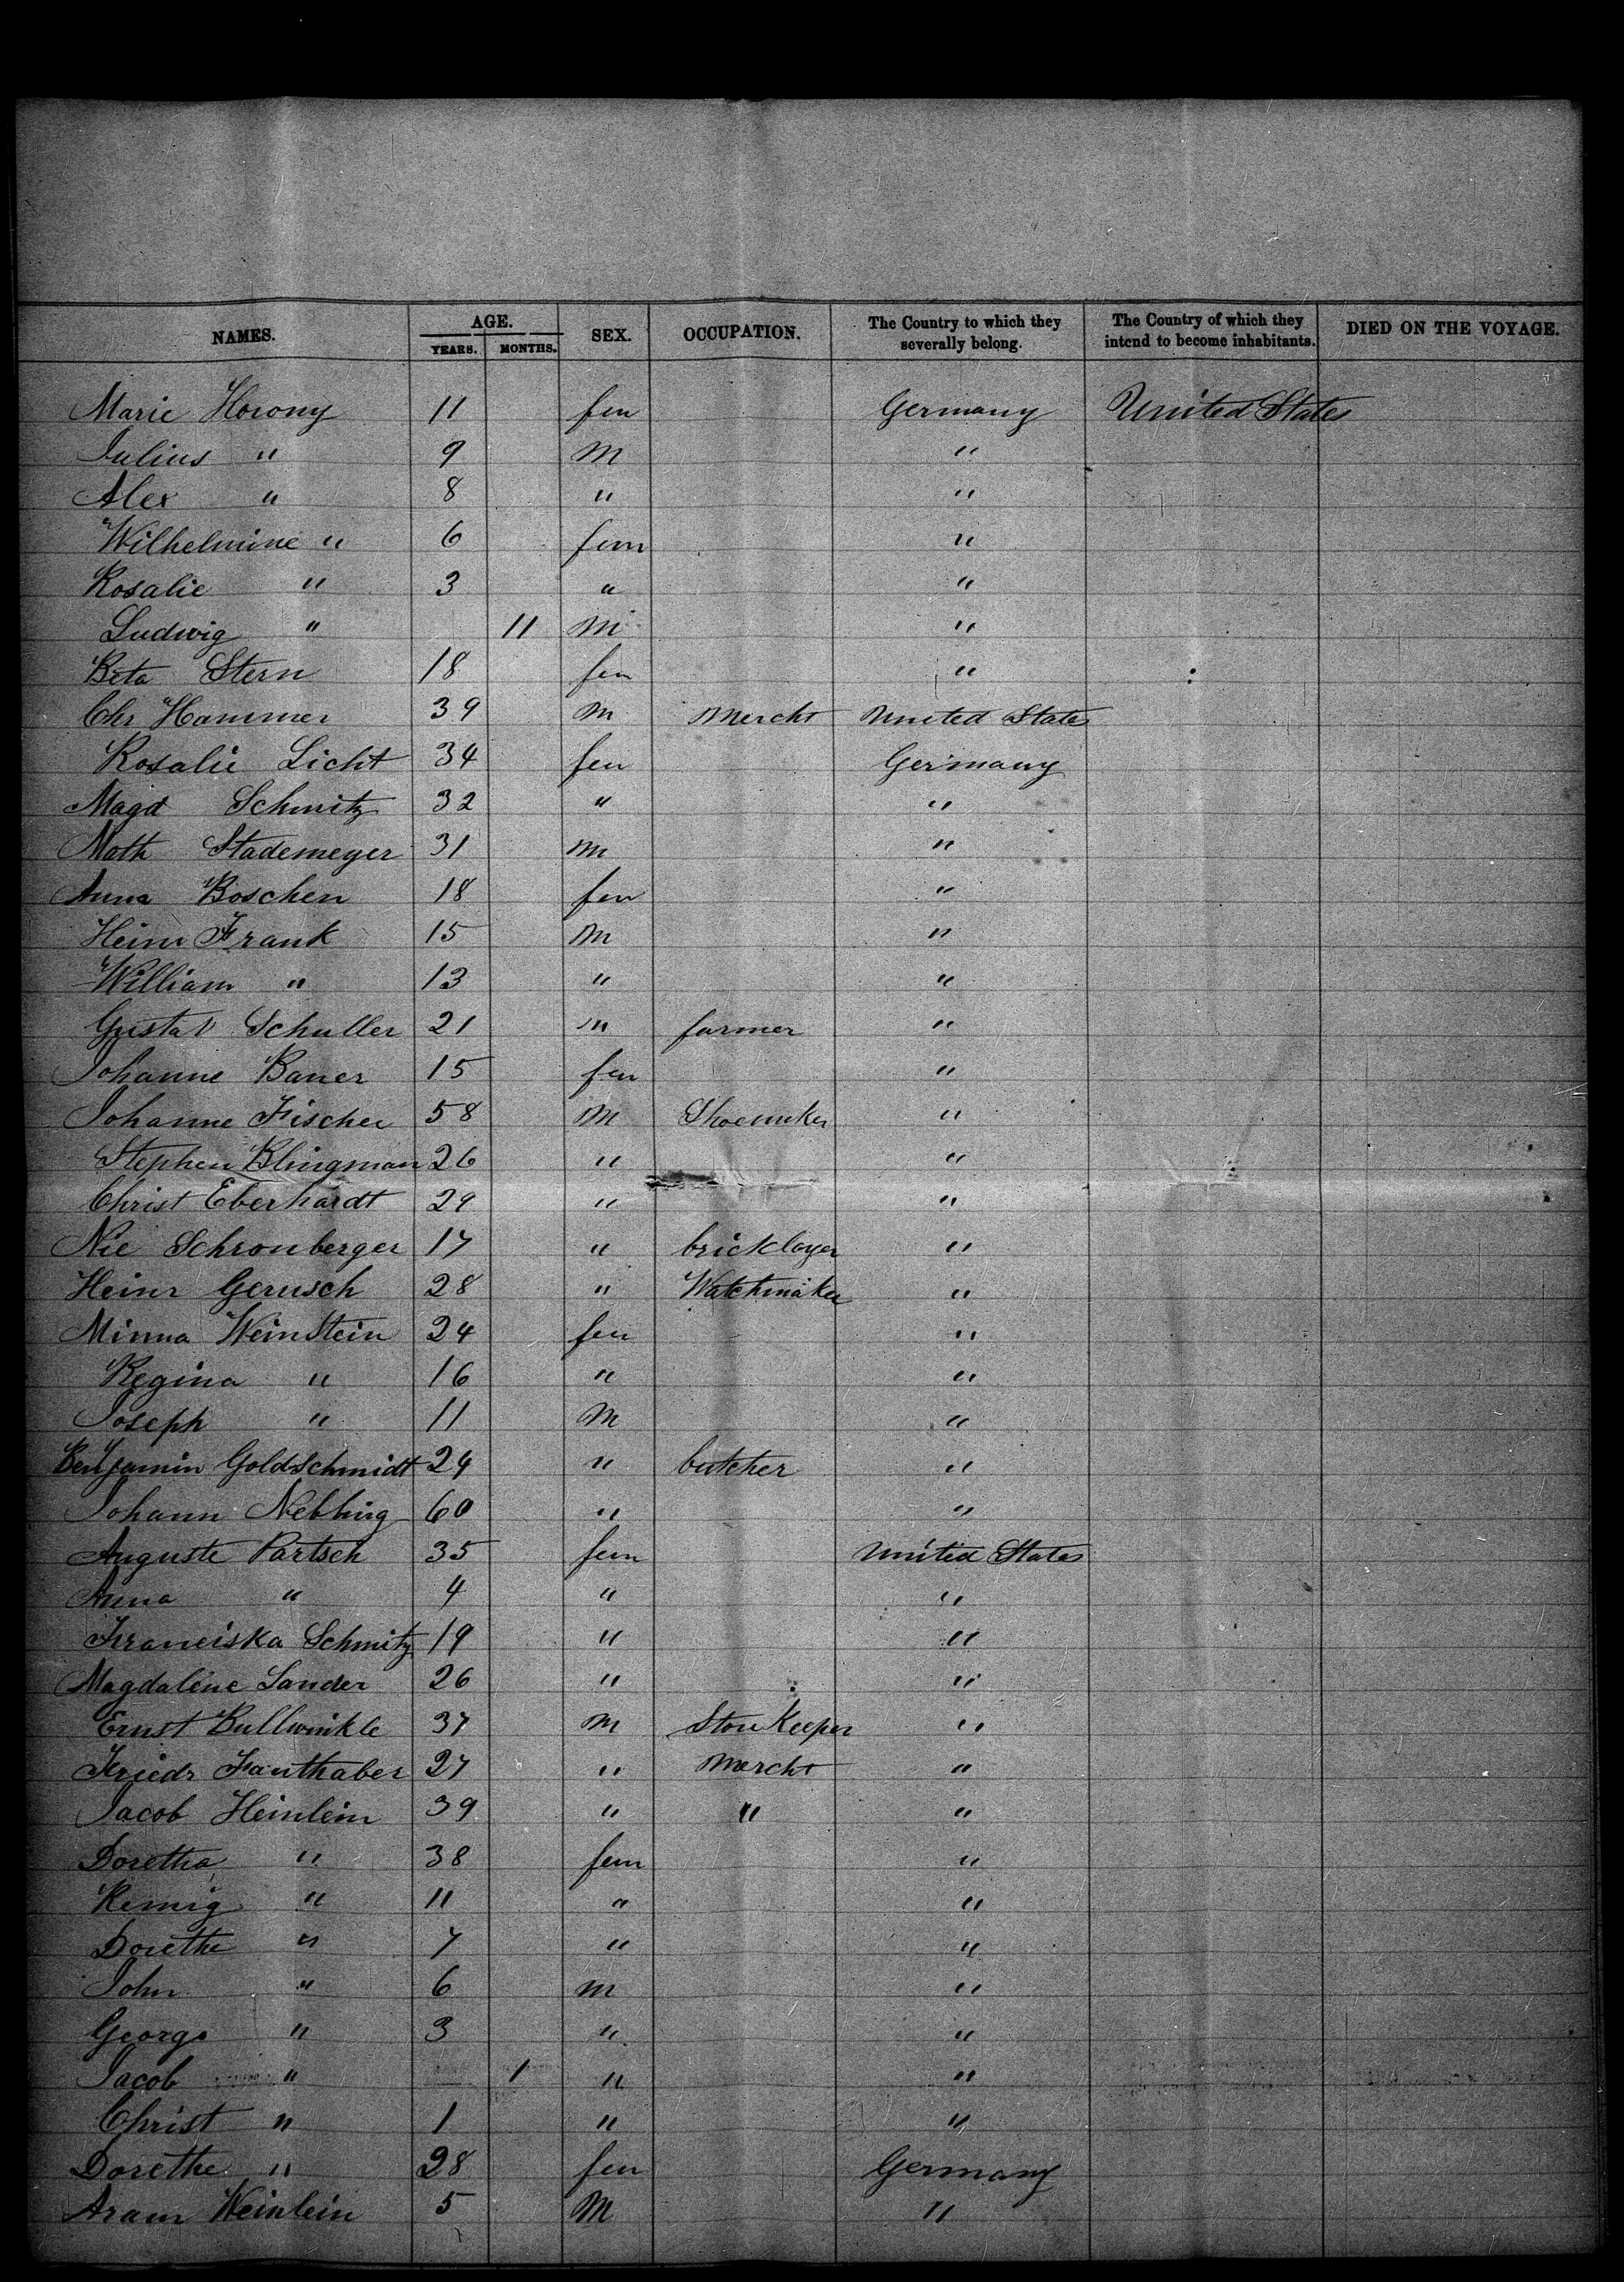 NAMES. AGE. YEARS. MONTHS. SEX. OCCUPATION. The Country to which they severally belong. The Country of which they intend to become inhabitants. DIED ON THE VOYAGE.
Marie Horony 11 fem Germany United States
Julius " 9 M "
Alex " 8 " "
Wilhelmine " 6 fem "
Rosalie " 3 " "
Ludwig " 11 M "
Beta Stern 18 fem "
Chr Hammer 39 M Mercht United States
Rosalie Licht 34 fem Germany
Magd Schmitz 32 " "
Math Stademeyer 31 M "
Anna Boschen 18 fem "
Heinr Frank 15 M "
William " 13 " "
Gustav Schuller 21 M farmer "
Johanne Bauer 15 fem "
Johanne Fischer 58 M Shoemaker "
Stephen Klingman 26 " "
Christ Eberhardt 29 " "
Nic Schronberger 17 " bricklayer "
Heinr Gerusch 28 " Watchmaker "
Minna Weinstein 24 fem "
Regina " 16 " "
Joseph " 11 M "
Benjamin Goldschmidt 24 " butcher "
Johann 60 " "
Auguste Partsch 35 fem United States
Anna " 4 " "
Franciska Schmitz 19 " "
Magdalene Sander 26 " "
Ernst Bullwinkle 37 M Store Keeper "
Friedr Fauthaber 27 " Mercht "
Jacob Heinlein 39 " " "
Doretha " 38 fem "
Remig " 11 " "
Dorethe " 7 " "
John " 6 M "
George " 3 " "
Jacob " 1 " "
Christ " 1 " "
Dorethe " 28 fem Germany
Aram Weinlein 5 M "